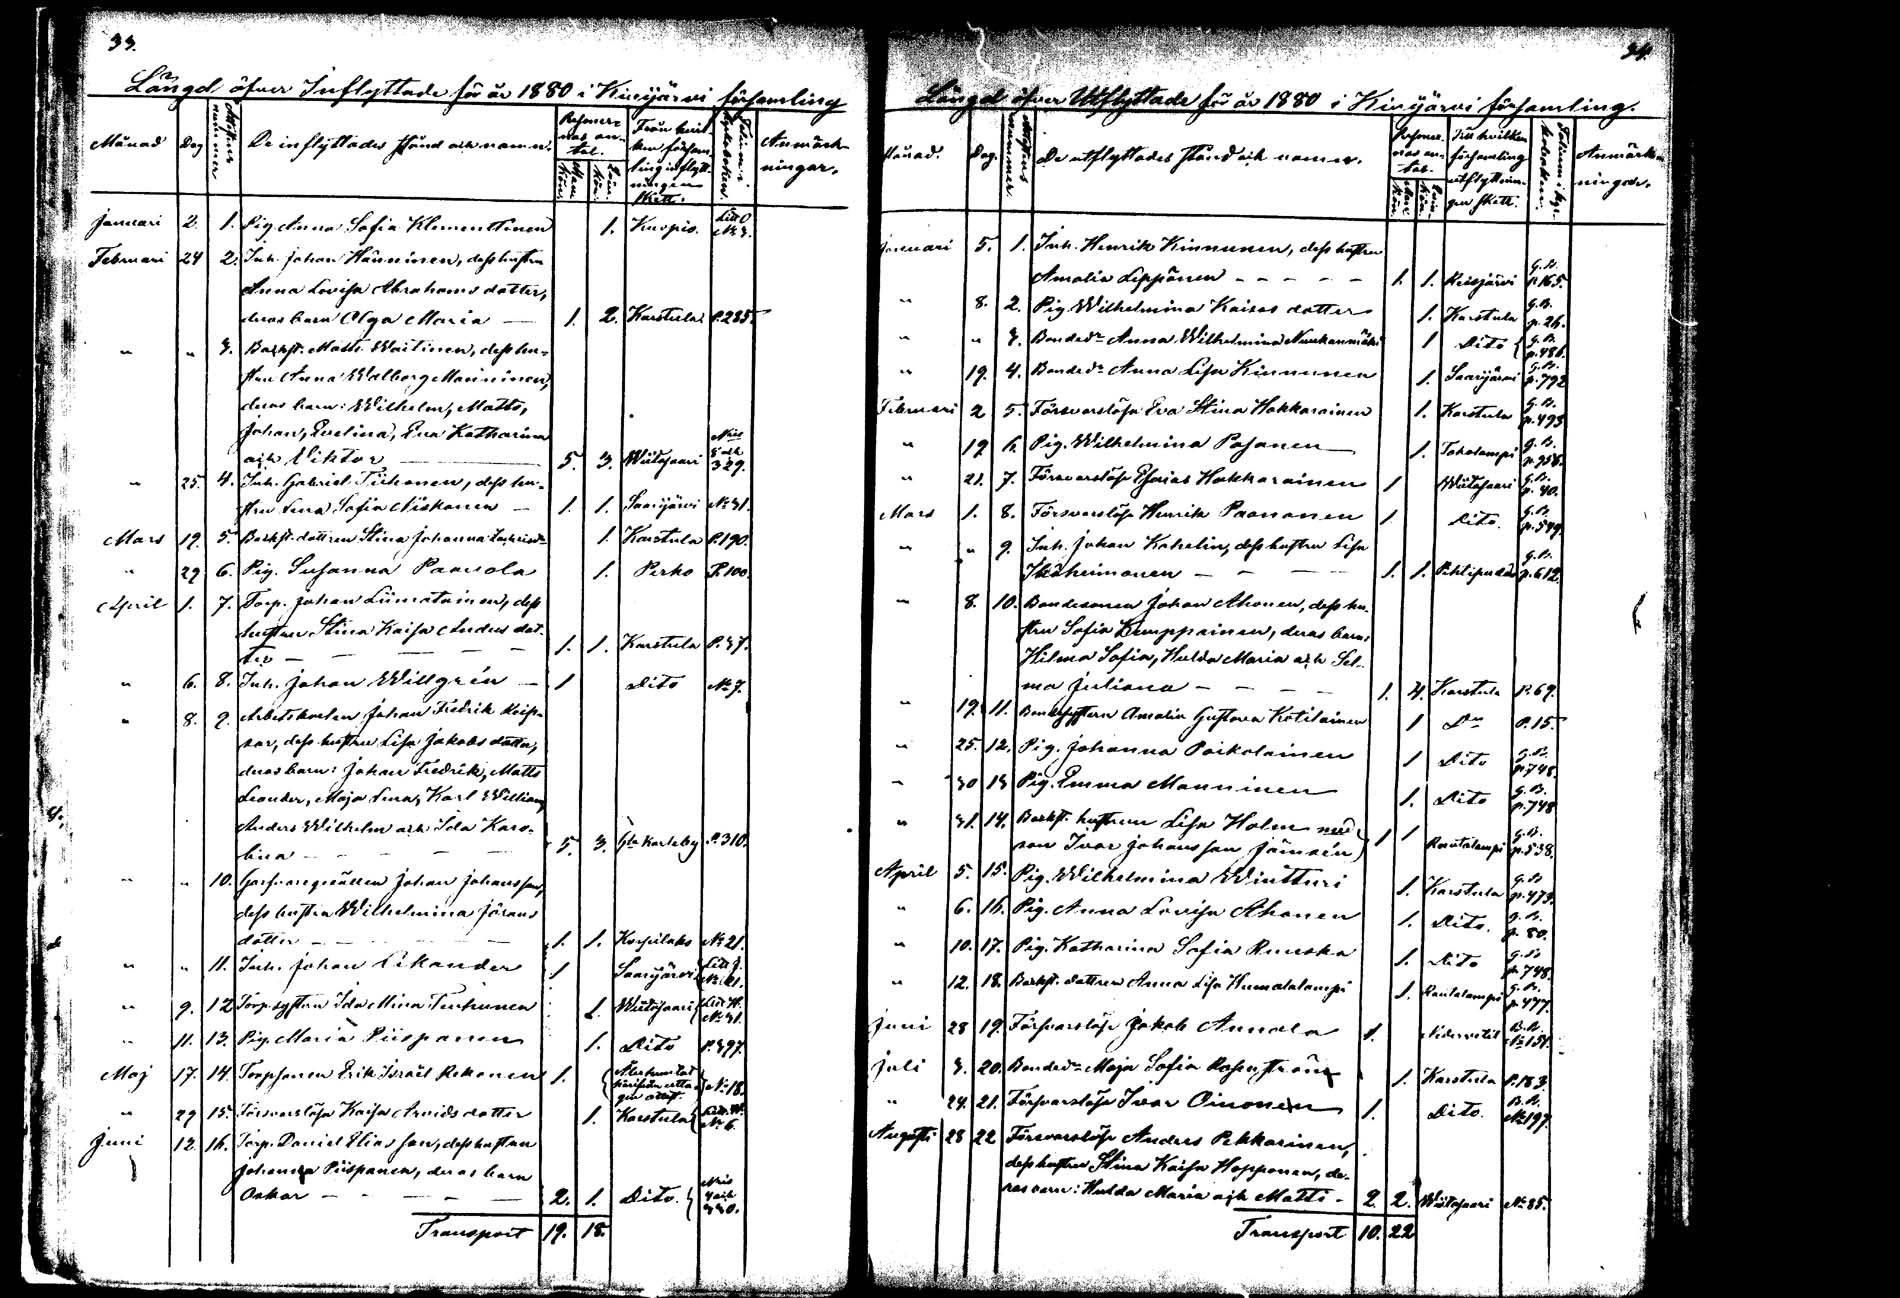 33.
Längd öfver Inflyttade för år 1880 i Kivijärvi församling
Månad Dag Attestens nummer De inflyttades stånd och namn. Personernas antal. Mankön. Qvinkön. Från hvilken församling inflyttningen skett. Anmärkningar.
Januari 2. 1. Pig. Anna Sofia Klementtinen 1. Kuopio. Litt O No 3.
Februari 24 2. Inh. Johan Hänninen, dess hustru
Anna Lovisa Abrahams dotter,
deras barn Olga Maria — 1. 2. Karstula P. 285.
" " 3. Backst. Matts Waitinen, dess hu-
stru Anna Walborg Manninen,
deras barn: Wilhelm, Matts,
Johan, Evelina, Eva Katharina
och Viktor — 5. 3. Wiitasaari 329.
" 25. 4. Inh. Gabriel Tiihonen, dess hu-
stru Lena Sofia Niskanen — 1. 1. Saarijärvi No 31.
Mars 19. 5. Backst. dottren Stina Johanna 1. Karstula P. 190.
" 29 6. Pig. Susanna Paavola 1. Perho P. 100.
April 1. 7. Torp. Johan Liimatainen, dess
hustru Stina Kaisa Anders dot-
ter — — — — — 1. 1. Karstula P. 37.
" 6. 8. Inh. Johan Willgrén — 1 Dito No 7.
" 8. 9. Arbetskarlen Johan Fredrik
dess hustru Lisa Jakobs dotter,
deras barn: Johan Fredrik, Matts
Leander, Maja Lena, Karl William,
Anders Wilhelm och Ida Karo-
lina — — — — 5. 3. Gla Karleby P. 310.
" " 10. Garfvaregesällen Johan Johansson,
dess hustru Wilhelmina Jörans
dotter — — — — 1. 1. Korpilaks No 21.
" " 11. Inh. Johan Likander 1 Saarijärvi Litt J. No 21.
" 9. 12 Torp. systern Ida Mina Turhunen 1. Wiitasaari Litt H. No 31.
" 11. 13. Pig. Maria Piispanen 1. Dito P. 397.
Maj 17. 14. Torpsonen Erik Israel Rekonen 1. No 18.
" 29 15. Försvarslösa Kaisa Arvids dotter 1. Karstula No 6.
Juni 12. 16. Torp. Daniel Eliasson, dess hustru
Johanna Piispanen, deras barn
Oskar — — — — — 2. 1. Dito. 330.
Transport 19. 18.
34.
Längd öfver Utflyttade för år 1880 i Kivijärvi församling.
Månad. Dag. Attestens nummer. De utflyttades stånd och namn. Personernas antal. Mankön. Qvinkön. Till hvilken församling utflyttningen skett. Anmärkningar.
Januari 5. 1. Inh. Henrik Kinnunen, dess hustru
Amalia Leppänen — — — — — 1. 1. Reisjärvi g. B. p. 165.
" 8. 2. Pig. Wilhelmina Kaisas dotter 1. Karstula g. B. p. 26.
" " 3. Bonded:r Anna Wilhelmina 1 Dito g. B. p. 486.
" 19. 4. Bonded:r Anna Lisa Kinnunen 1. Saarijärvi g. B. p. 792
Februari 2 5. Försvarslösa Eva Stina Hakkarainen 1. Karstula g. B. p. 493
" 19 6. Pig. Wilhelmina Pasanen 1. Toholampi g. B. p. 958.
" 21. 7. Försvarslöse Esaias Hakkarainen 1 Wiitasaari g. B. p. 40.
Mars 1. 8. Försvarslöse Henrik Paananen 1. Dito. g. B. p. 549.
" " 9. Inh. Johan Kahelin, dess hustru Lisa
Ikäheimonen — — — 1. 1. Pihtipudas g. B. p. 612.
" 8. 10. Bondesonen Johan Ahonen, dess hu-
stru Sofia Kemppainen, deras barn:
Hilma Sofia, Hulda Maria och Sel-
ma Juliana — — — — 1. 4. Karstula P. 69.
" 19. 11. Bondesystern Amalia Gustava Kotilainen 1 D:o P. 15.
" 25. 12. Pig. Johanna Poikolainen 1 Dito g. B. p. 748.
" 30 13 Pig. Emma Manninen 1. Dito g. B. p. 748
" 31. 14. Backst. hustrun Lisa Holm med
son Ivar Johansson Jämsén 1 1 Rautalampi g. B. p. 538.
April 5. 15. Pig. Wilhelmina Wintturi 1. Karstula g. B. p. 473.
" 6. 16. Pig. Anna Lovisa Ahonen 1. Dito. g. B. p. 80.
" 10. 17. Pig. Katharina Sofia Ruuska 1. Dito g. B. p. 748.
" 12. 18. Backst. dottren Anna Lisa Humalalampi 1. Rautalampi g. B. p. 477.
Juni 28 19. Försvarslöse Jakob Annala 1. Nedervetil B. B. No 151.
Juli 3. 20. Bonded:r Maja Sofia Rosenström 1. Karstula P. 183.
" 24. 21. Försvarslöse Ivar Oinonen 1. Dito. B. B. No 197
Augusti 28 22 Försvarslöse Andres Pekkarinen,
dess hustru Stina Kaisa Hopponen, de-
ras barn: Hulda Maria och Matti - 2. 2. Wiitasaari No 85.
Transport 10. 22